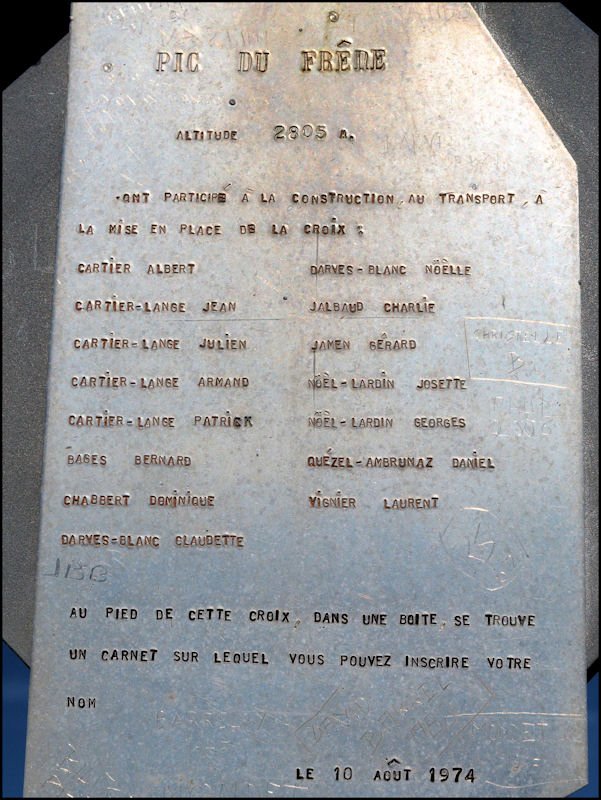 PIC DU FRÊNE
ALTITUDE 2805 M.
ONT PARTICIPÉ À LA CONSTRUCTION, AU TRANSPORT, À
LA MISE EN PLACE DE LA CROIX :
CARTIER ALBERT DARVES-BLANC NÖËLLE
CARTIER-LANGE JEAN JALBAUD CHARLIE
CARTIER-LANGE JULIEN JAMEN GÊRARD
CARTIER-LANGE ARMAND NÖËL-LARDIN JOSETTE
CARTIER-LANGE PATRICK NÖËL-LARDIN GEORGES
BAGES BERNARD QUÉZEL-AMBRUNAZ DANIEL
CHABBERT DOMINIQUE VIGNIER LAURENT
DARVES-BLANC CLAUDETTE
JBB
AU PIED DE CETTE CROIX, DANS UNE BOITE, SE TROUVE
UN CARNET SUR LEQUEL VOUS POUVEZ INSCRIRE VOTRE
NOM
DAVID
LE 10 AOÛT 1974